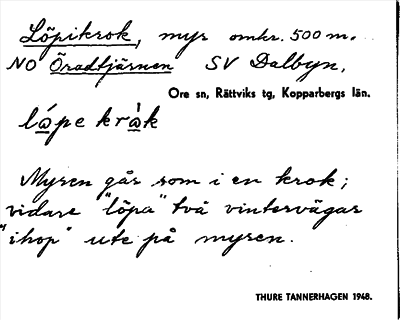 Löpikrok, myr omkr. 500 m.
NO Öradtjärnen SV Dalbyn,
Ore sn, Rättviks tg, Kopparbergs län.
lá̱pe krà̱k
Myren går som i en krok;
vidare "löpa" två vintervägar
"ihop" ute på myren.
THURE TANNERHAGEN 1948.